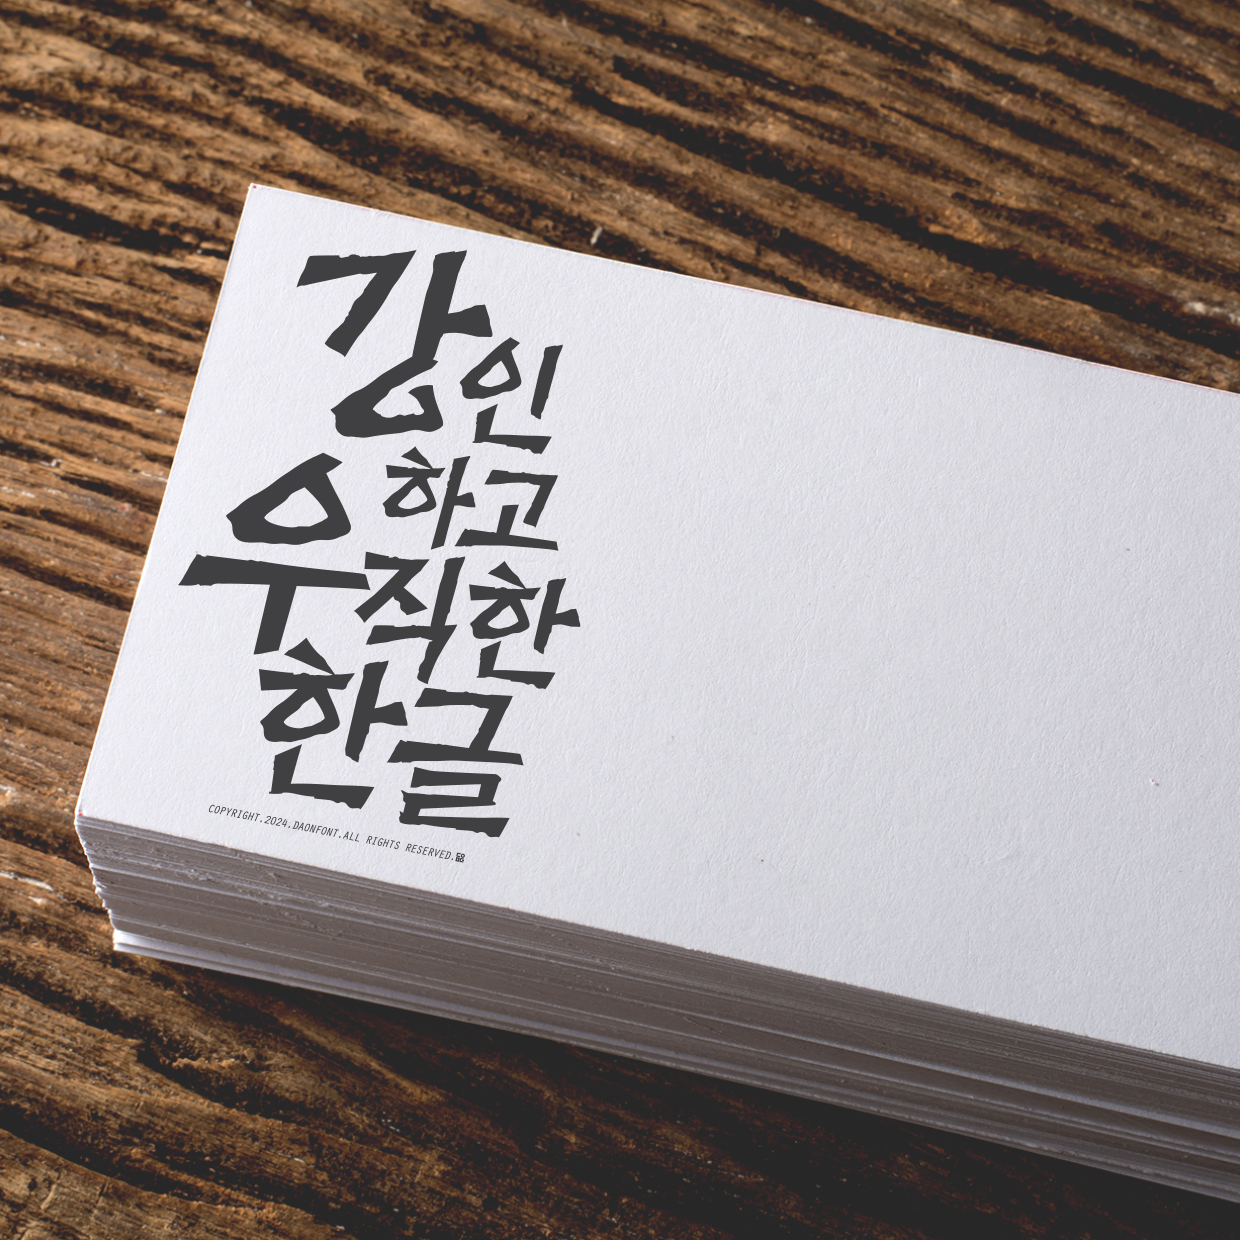 강인
하고
우직한
한글
COPYRIGHT.2024.DAONFONT.ALL RIGHTS RESERVED.